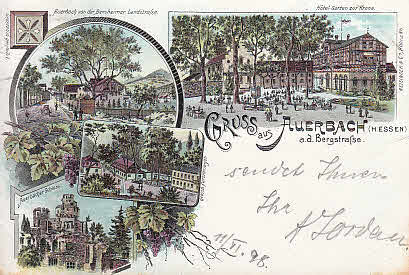 Auerbach von der Bensheimer Landstraße.
Hôtel-Garten zur Krone.
GRUSS aus AUERBACH (HESSEN)
a.d. Bergstraße.
Auerbacher Schloss.
sendet Ihnen
Ihr
A Jordan
11/VI. 98.